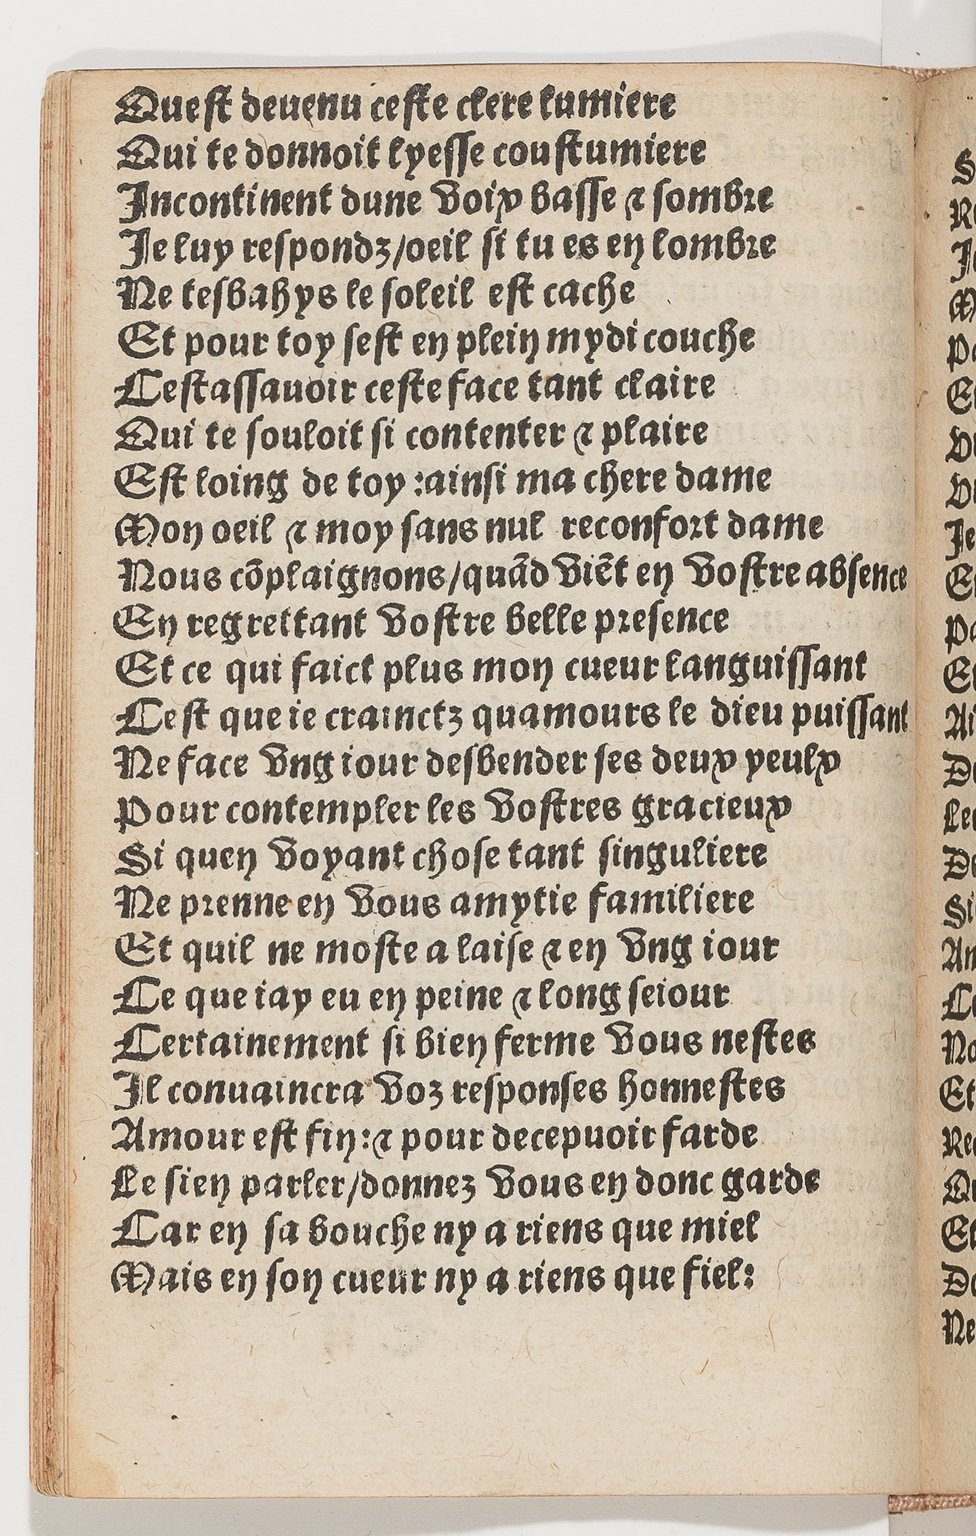 Quest deuenu ceste clere lumiere
Qui te donnoit lyesse coustumiere
Incontinent dune voix basse ⁊ sombre
Je luy respondz/oeil si tu es en lombre
Ne tesbahys le soleil est cache
Et pour toy sest en plein mydi couche
Cestassauoir ceste face tant claire
Qui te souloit si contenter ⁊ plaire
Est loing de toy :ainsi ma chere dame
Mon oeil ⁊ moy sans nul reconfort dame
Nous cõplaignons/quãd viẽt en vostre absence
En regrettant vostre belle presence
Et ce qui faict plus mon cueur languissant
Cest que ie crainctz quamours le dieu puissant
Ne face vng iour desbender ses deux yeulx
Pour contempler les vostres gracieux
Si quen voyant chose tant singuliere
Ne prenne en vous amytie familiere
Et quil ne moste a laise ⁊ en vng iour
Ce que iay eu en peine ⁊ long seiour
Certainement si bien ferme vous nestes
Il conuaincra voz responses honnestes
Amour est fin:⁊ pour decepuoir farde
Le sien parler/donnez vous en donc garde
Car en sa bouche ny a riens que miel
Mais en son cueur ny a riens que fiel: